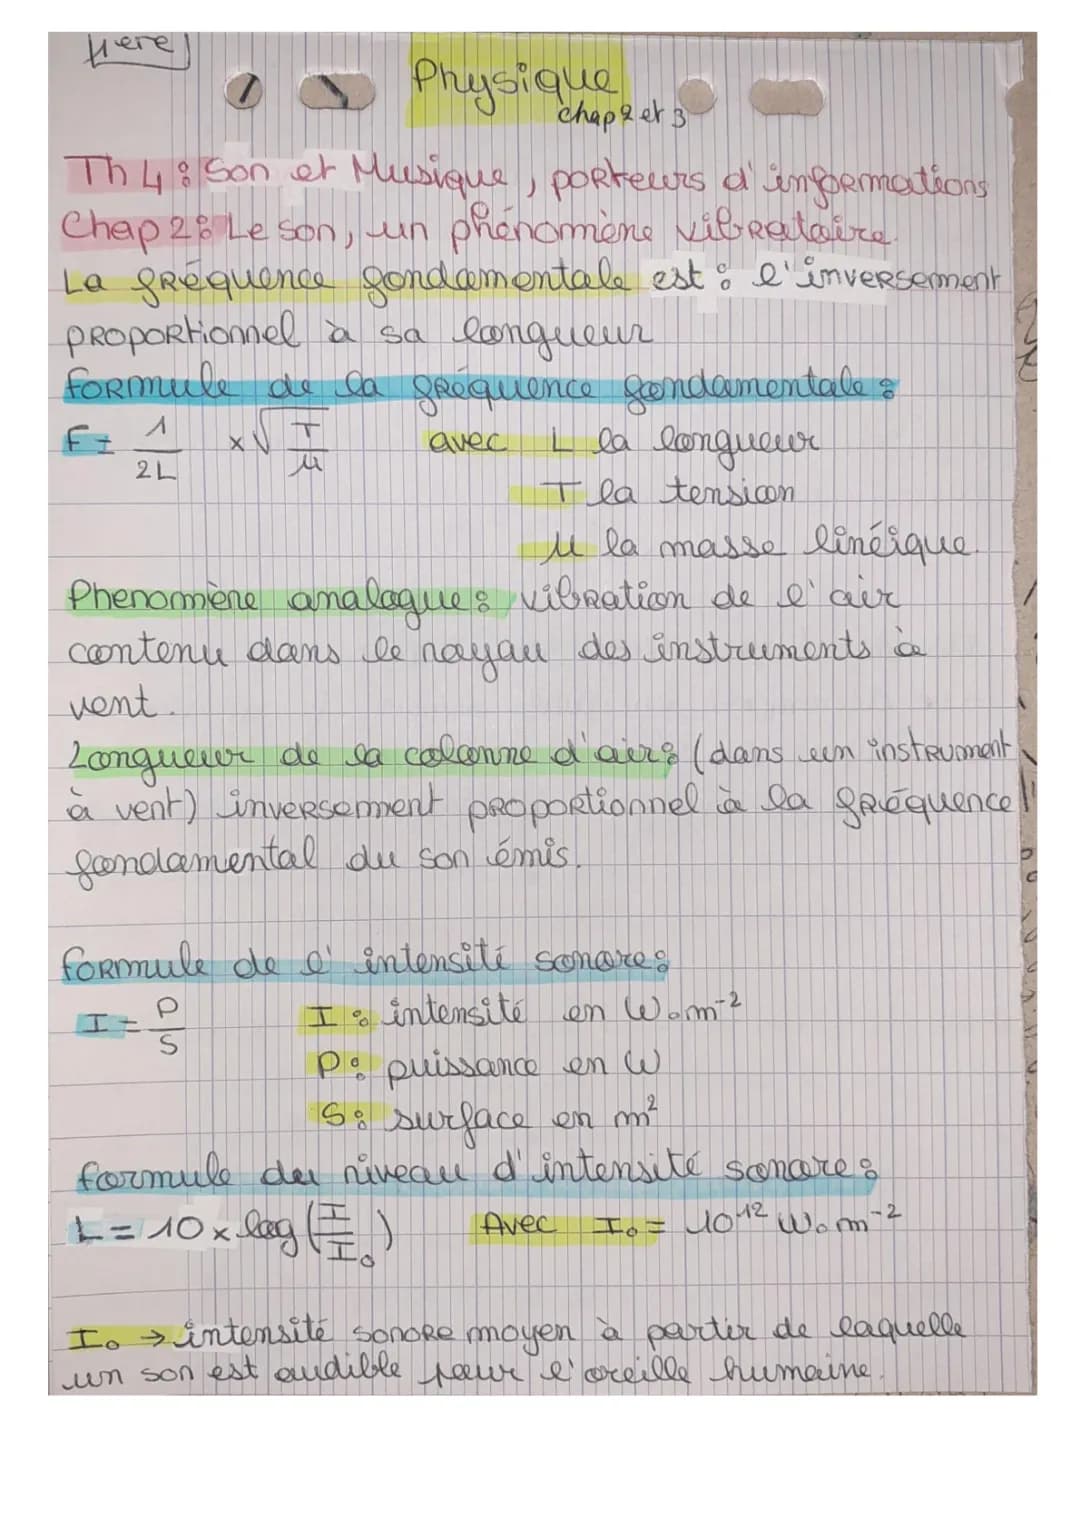 1ère
Physique
chap 2 et 3
Th 4 : Son et Musique, porteurs d'informations
Chap 2 : Le son, un phénomène vibratoire.
La fréquence fondamentale est : l'inversement
proportionnel à sa longueur
formule de la fréquence fondamentale :
F = 1/2L × √T/μ avec L la longueur
T la tension
μ la masse linéique.
Phenomène analogue : vibration de l'air
contenu dans le noyau des instruments à
vent.
Longueur de la colonne d'air : (dans un instrument
à vent) inversement proportionnel à la fréquence
fondamental du son émis.
formule de l'intensité sonore :
I = P/S I : intensité en W.m⁻²
P : puissance en W
S : surface en m²
formule du niveau d'intensité sonore :
L = 10 × log(I/I₀) Avec I₀ = 10⁻¹² W.m⁻²
I₀ → intensité sonore moyen à partir de laquelle
un son est audible pour l'oreille humaine.